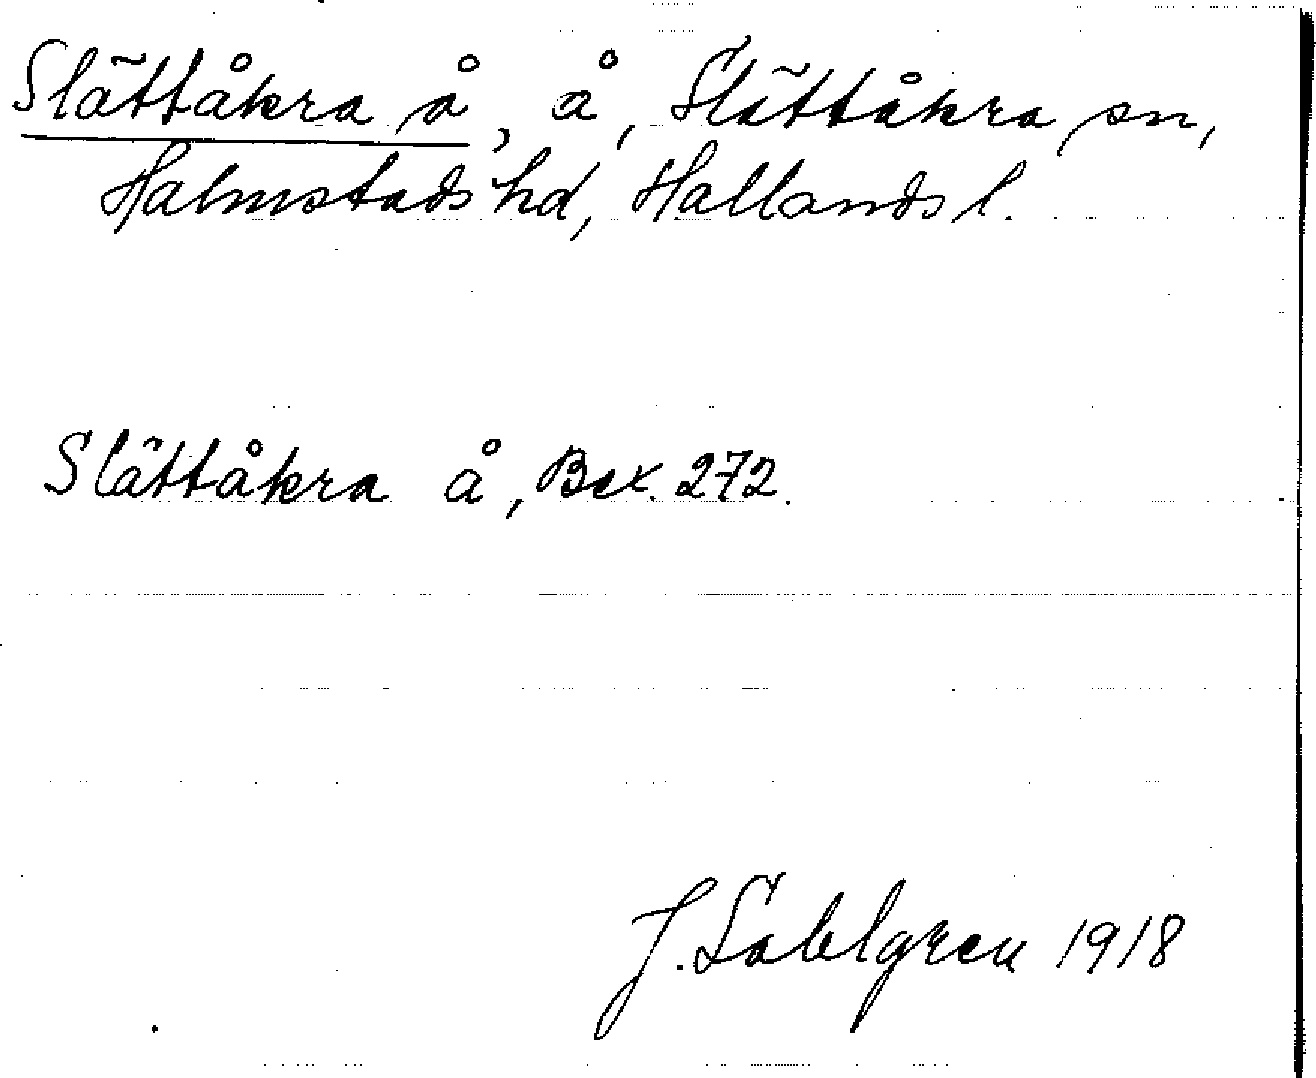 Slättåkra å, å, Slättåkra sn,
Halmstads hd, Hallands l.
Slättåkra å, Bex. 272.
J. Sahlgren 1918